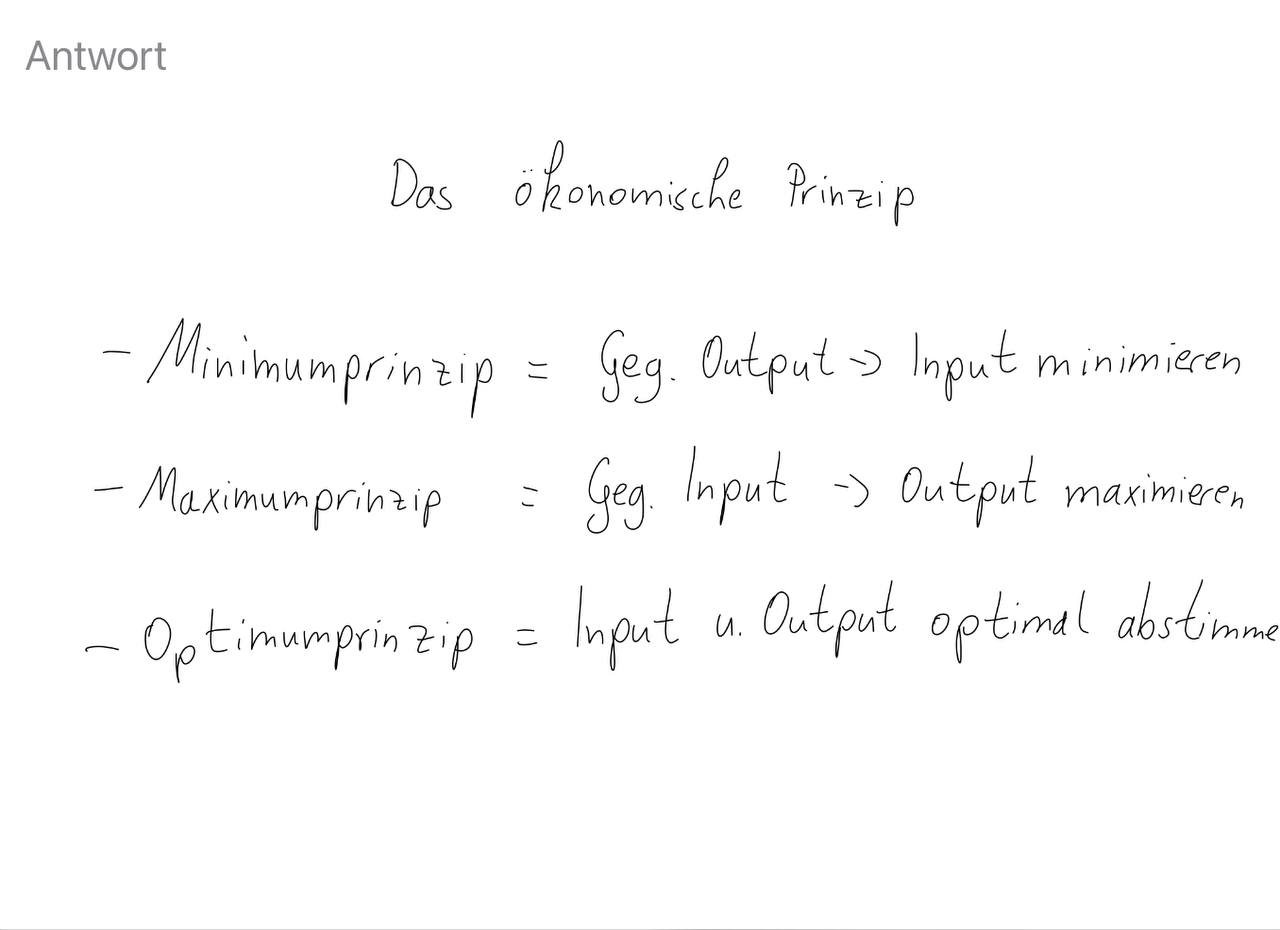 Antwort
Das ökonomische Prinzip
- Minimumprinzip = Geg. Output -> Input minimieren
- Maximumprinzip = Geg. Input -> Output maximieren
- Optimumprinzip = Input u. Output optimal abstimme